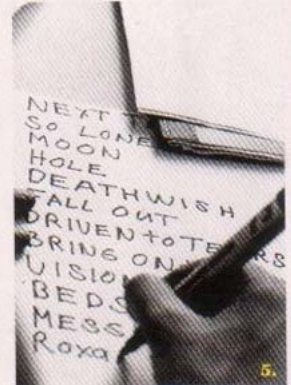 NEXT
SO LONE
MOON
HOLE
DEATHWISH
FALL OUT
DRIVEN to TE RS
BRING ON
VISION
BEDS
MESS
Roxa
5.